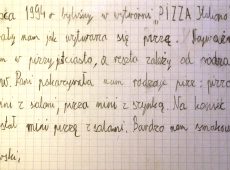 1994 r byliśmy w wytwórni "PIZZA Italiano
nam jak wytwarza się pizzę.
w pizzy jest ciasto, a reszta zależy od
Pani pokazywała nam rodzaje pizz: pizza
mini z salami, pizza mini z szynką. Na koniec
mini pizzę z salami. Bardzo nam smakowała